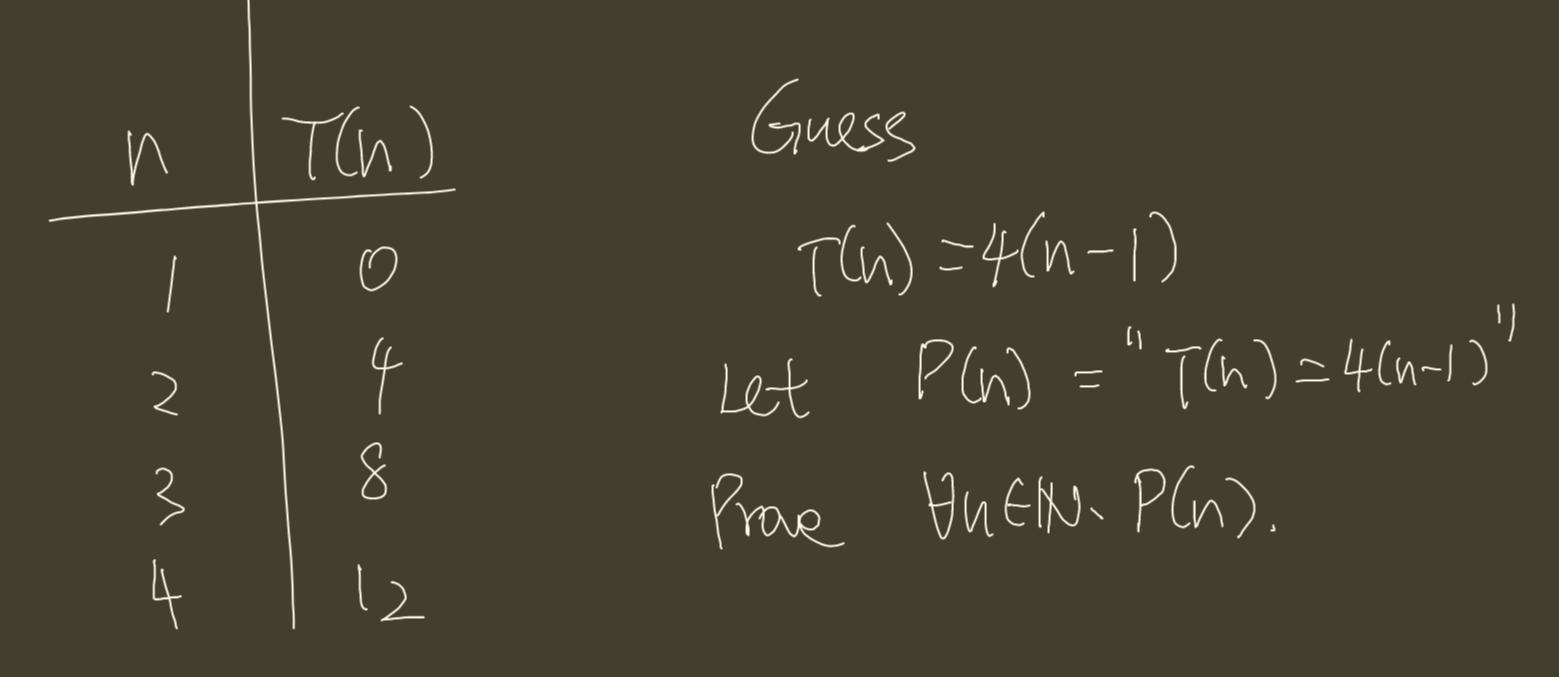 n T(n)
1 0
2 4
3 8
4 12
Guess
T(n) = 4(n-1)
Let P(n) = "T(n) = 4(n-1)"
Prove ∀n∈ℕ. P(n).